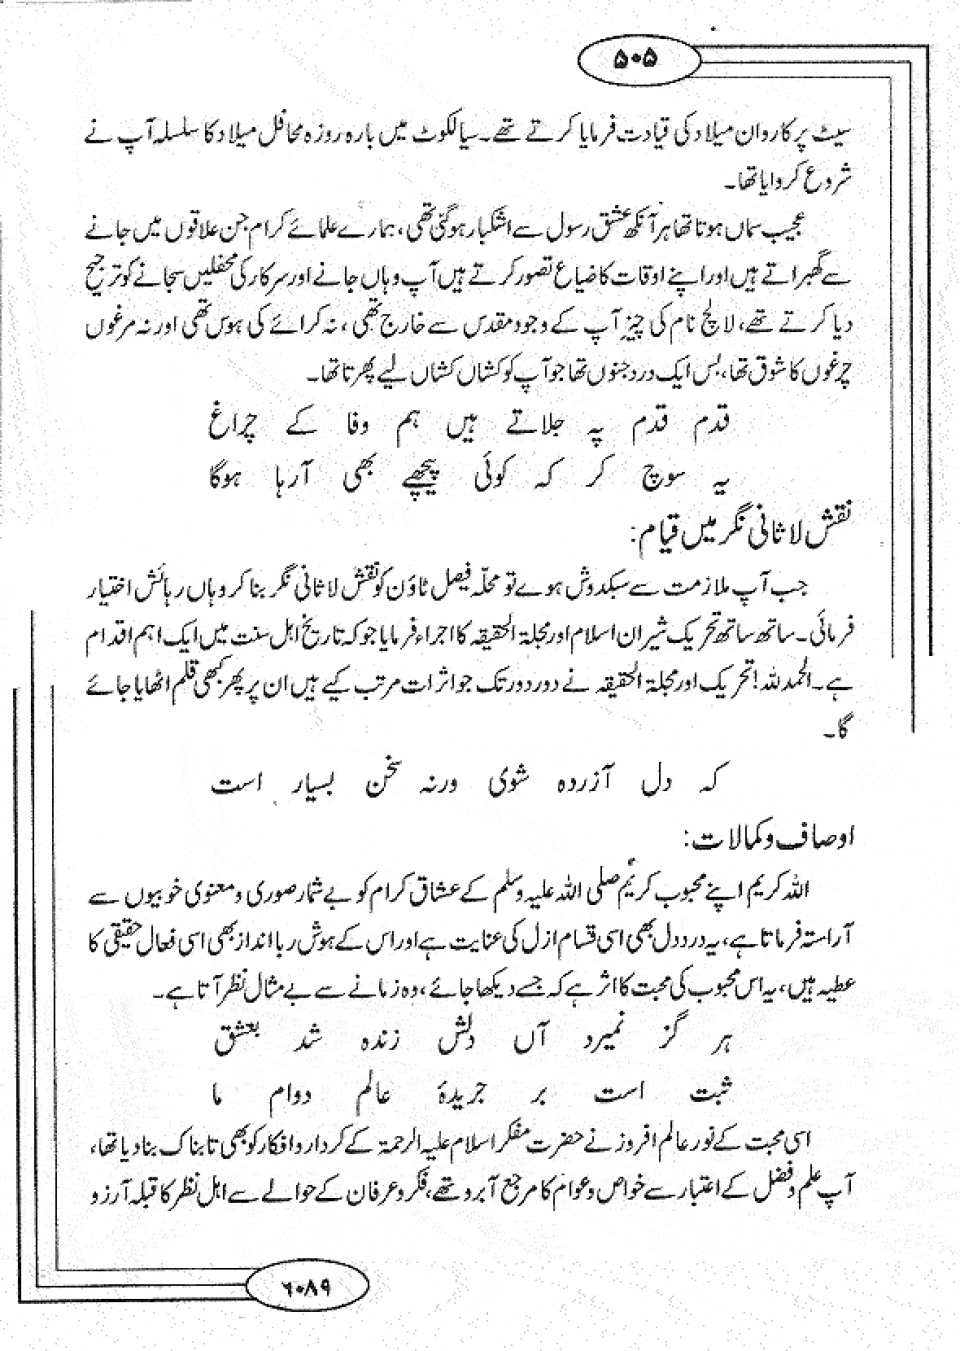 ۵۰۵
سیٹ پر کاروان میلاد کی قیادت فرمایا کرتے تھے۔ سیالکوٹ میں بارہ روزہ محافل میلاد کا سلسلہ آپ نے
شروع کروایا تھا۔
عجیب سماں ہوتا تھا ہر آنکھ عشق رسول سے اشکبار ہو گئی تھی، ہمارے علمائے کرام جن علاقوں میں جانے
سے گھبراتے ہیں اور اپنے اوقات کا ضیاع تصور کرتے ہیں آپ وہاں جانے اور سرکار کی محفلیں سجانے کو ترجیح
دیا کرتے تھے، لالچ نام کی چیز آپ کے وجود مقدس سے خارج تھی، نہ کرائے کی ہوس تھی اور نہ مرغوں
چرغوں کا شوق تھا، بس ایک درد جنوں تھا جو آپ کو کشاں کشاں لیے پھرتا تھا۔
قدم قدم پہ جلاتے ہیں ہم وفا کے چراغ
یہ سوچ کر کہ کوئی پیچھے بھی آرہا ہوگا
نقش لاثانی نگر میں قیام:
جب آپ ملازمت سے سبکدوش ہوے تو محلہ فیصل ٹاؤن کو نقش لاثانی نگر بنا کر وہاں رہائش اختیار
فرمائی۔ ساتھ ساتھ تحریک شیران اسلام اور مجلۃ الحقیقہ کا اجراء فرمایا جو کہ تاریخ اہل سنت میں ایک اہم اقدام
ہے۔ الحمد للہ! تحریک اور مجلۃ الحقیقہ نے دور دور تک جو اثرات مرتب کیے ہیں ان پر پھر کبھی قلم اٹھایا جائے
گا۔
کہ دل آزردہ شوی ورنہ سخن بسیار است
اوصاف و کمالات:
اللہ کریم اپنے محبوب کریم صلی اللہ علیہ وسلم کے عشاق کرام کو بے شمار صوری و معنوی خوبیوں سے
آراستہ فرماتا ہے، یہ درد دل بھی اسی قسام ازل کی عنایت ہے اور اس کے ہوش ربا انداز بھی اسی فعال حقیقی کا
عطیہ ہیں، یہ اس محبوب کی محبت کا اثر ہے کہ جسے دیکھا جائے، وہ زمانے سے بے مثال نظر آتا ہے۔
ہر گز نمیرد آں دلش زندہ شد بعشق
ثبت است بر جریدۂ عالم دوام ما
اسی محبت کے نور عالم افروز نے حضرت مفکر اسلام علیہ الرحمۃ کے کردار و افکار کو بھی تابناک بنا دیا تھا،
آپ علم و فضل کے اعتبار سے خواص و عوام کا مرجع آبرو تھے، فکر و عرفان کے حوالے سے اہل نظر کا قبلہ آرزو
۶۰۸۹